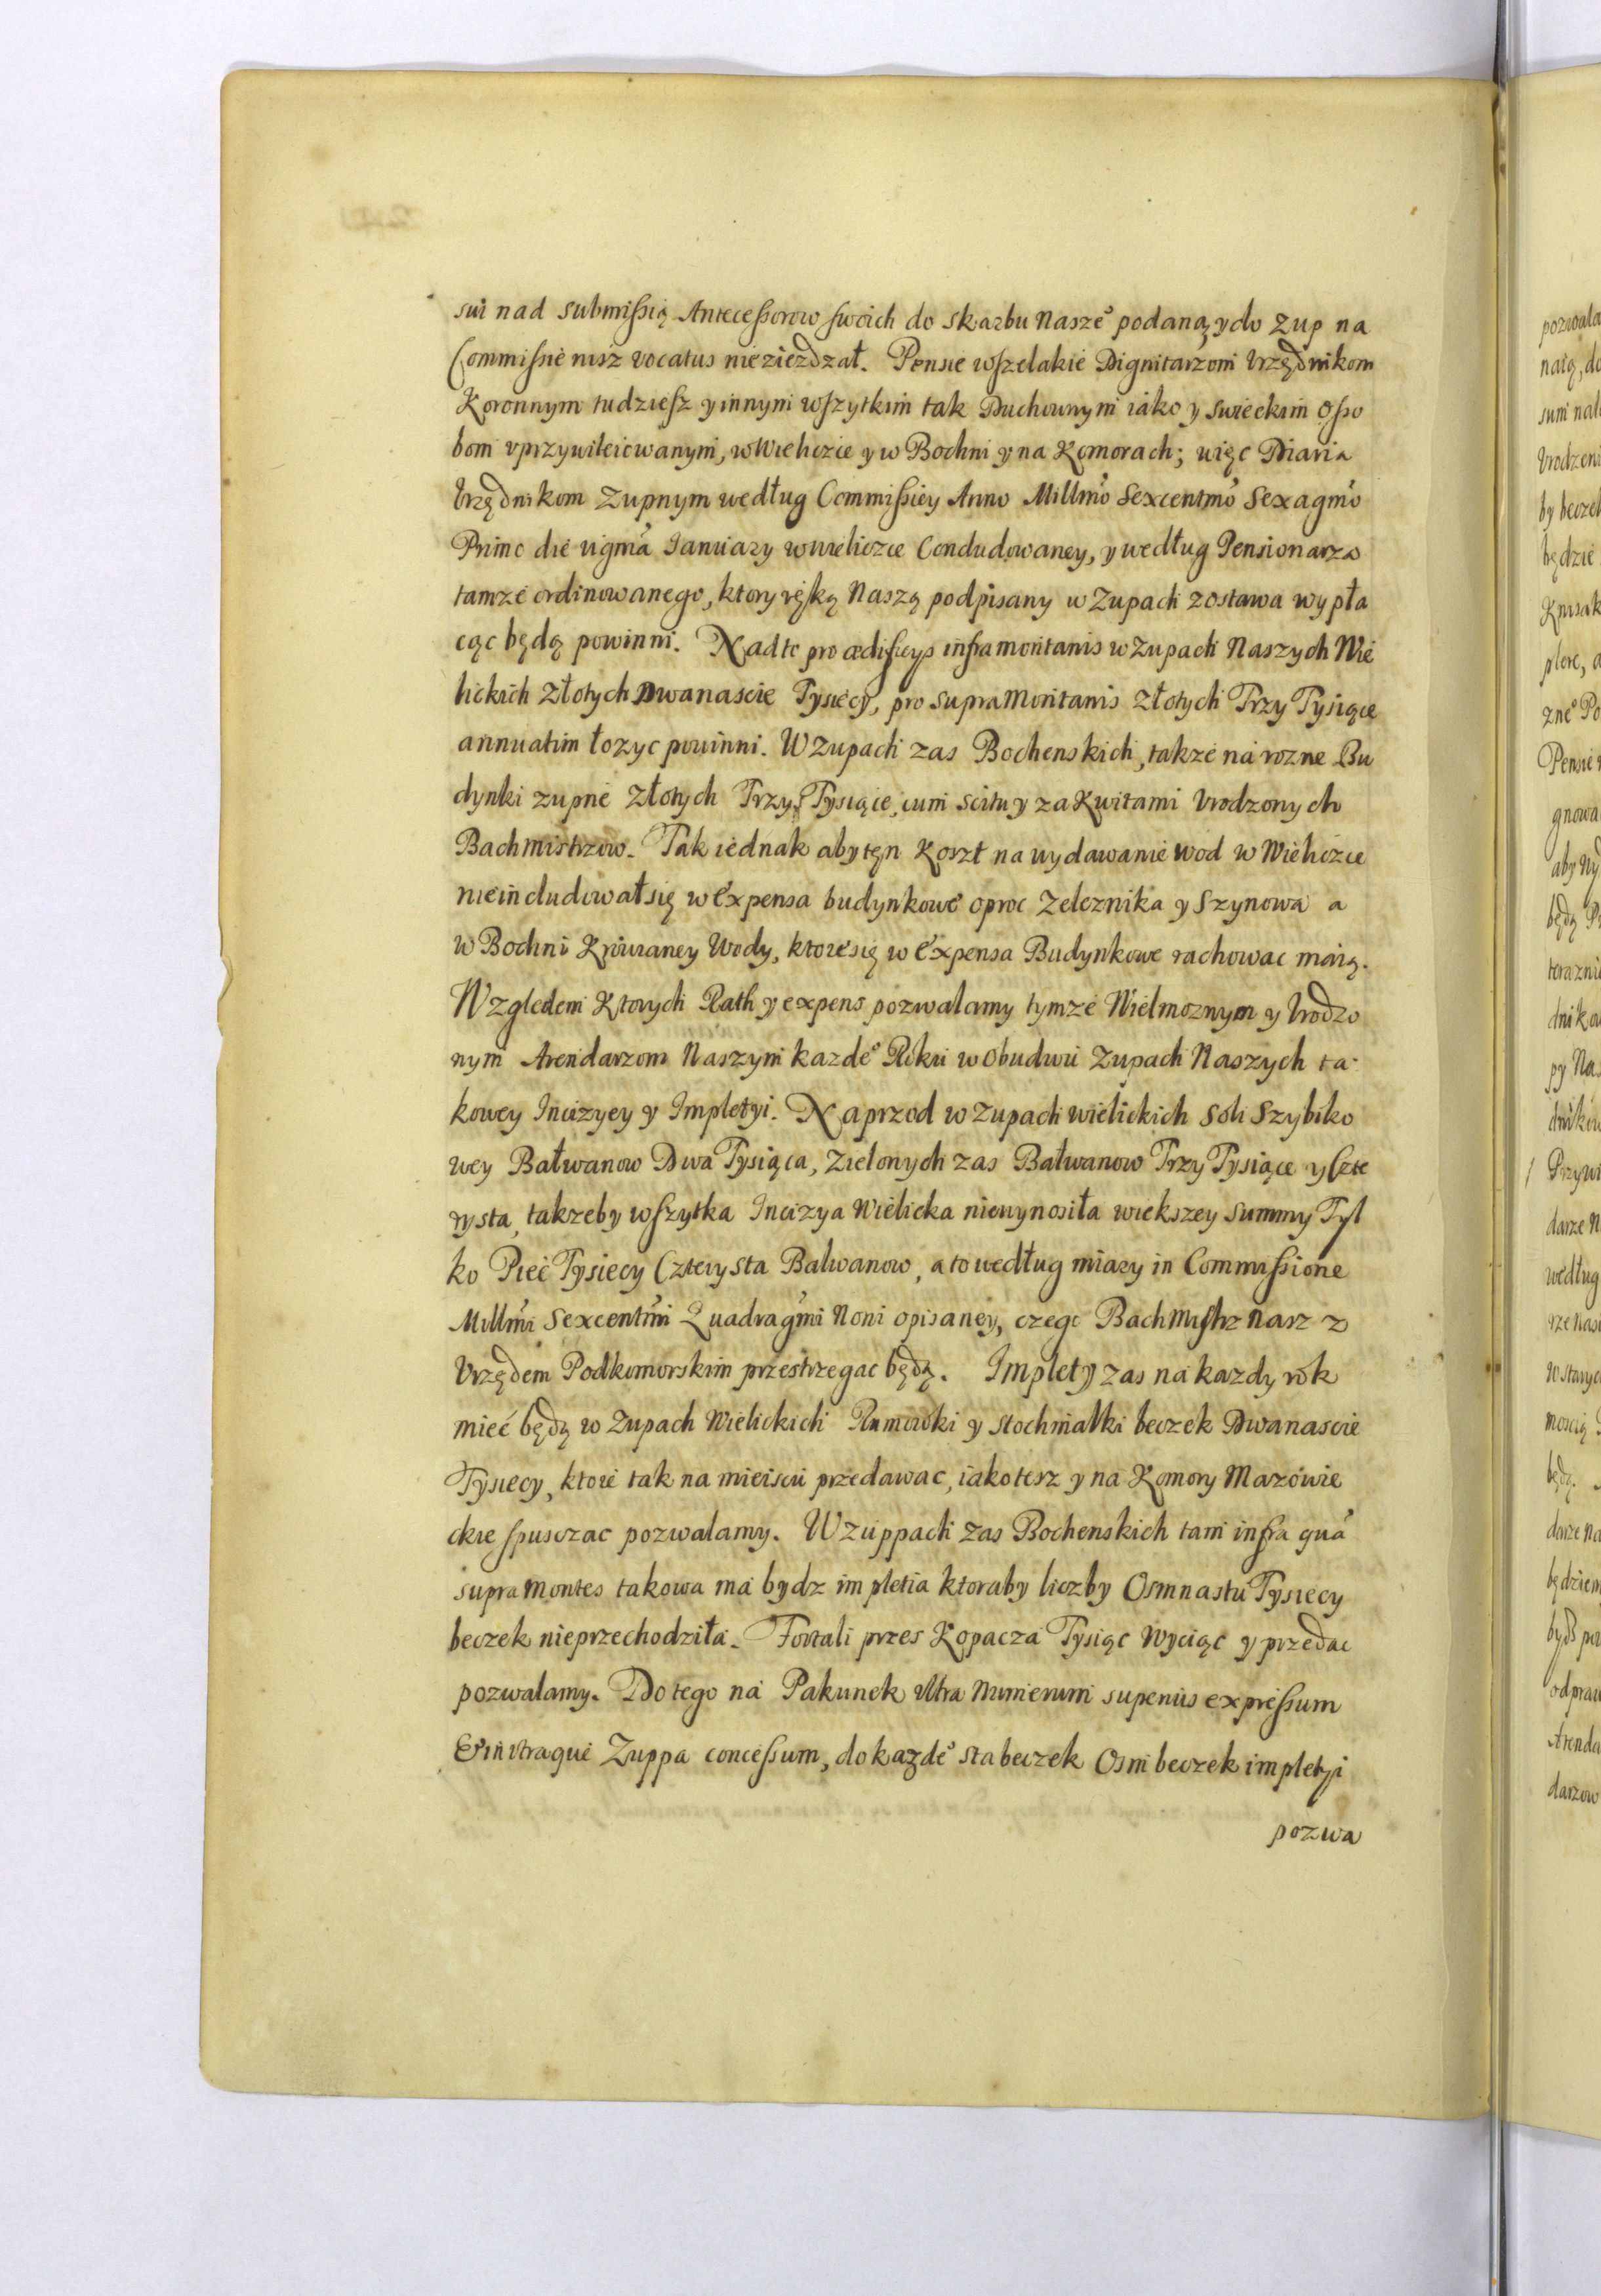 sui nad submissią Antecessorow swoich do skarbu Nasze° podaną, y do Zup na
Commissie nisz vocatus niezieżdzał. Pensie wszelakie Dignitarzom Vrzędnikom
Koronnym tudziesz y innym wszytkim tak Duchownym iáko y swieckim Osso
bom vprzywileiowanym, w Wieliczce y w Bochni y na Komorach; więc Diaria
Vrzędnikom Zupnym według Commissiey Anno Millmo Sexcentmo Sexagmo
Primo die vigma Ianuary w Wieliczce Concludowaney, y według Pensionarza
tamże ordinowanego, ktory ręką Naszą podpisany w Zupach zostawa wypła
cąc będą powinni. Nadto pro ædificys inframontanis w Zupach Naszych Wie
lickich Złotych Dwanascie Tysięcy, pro supra Montanis Złotych Trzy Tysiące
annuatim łozyc powinni. W Zupach zas Bochenskich, także ná rozne Bu
dynki zupne Złotych Trzy Tysiące, cum scitu y za Kwitami Vrodzonych
Bachmistrzow. Tak iednak aby tęn Koszt na wydawanie wod w Wieliczce
nieincludował się w expensa budynkowe oproc Zelaznika y Szynowa a
w Bochni Kriwaney Wody, ktore się w expensa Budynkowe rachowac maią.
Względem Ktorych Rath y expens pozwalamy tymże Wielmoznym y Vrodzo
nym Arendarzom Naszym kazde° Roku w Obudwu Zupach Naszych ta
kowey Incizyey y Impletyi. Naprzod w Zupach wielickich Soli Szybiko
wey Bałwanow Dwa Tysiąca, Zielonych zas Bałwanow Trzy Tysiące y Czte
rysta, takzeby wszytka Incizya Wielicka niewynosiła wiekszey Summy Tyl
ko Pieć Tysiecy Czterysta Balwanow, a to według miary in Commissione
Millmi Sexcentmi Quadragmi Noni opisaney, czego Bachmistrz Nasz z
Vrzędem Podkomorskim przestrzegac będą. Implety zas ná kazdy rok
mieć będą w Zupach Wielickich Rumowki y stochmalki beczek Dwanascie
Tysiecy, ktore tak na mieiscu przedawac, iako tesz y na Komory Mazówie
ckie spusczac pozwalamy. W Zuppach zas Bochenskich tam infra qua
supra Montes takowa má bydz impletia ktoraby liczby Osmnastu Tysiecy
beczek nieprzechodziła. Fortali przes Kopacza Tysiąc Wyciąc y przedac
pozwalamy. Do tego ná Pakunek ultra Numerum superius expressum
& in vtraque Zuppa concessum, do kazde° sta beczek Osm beczek impletyi
pozwa